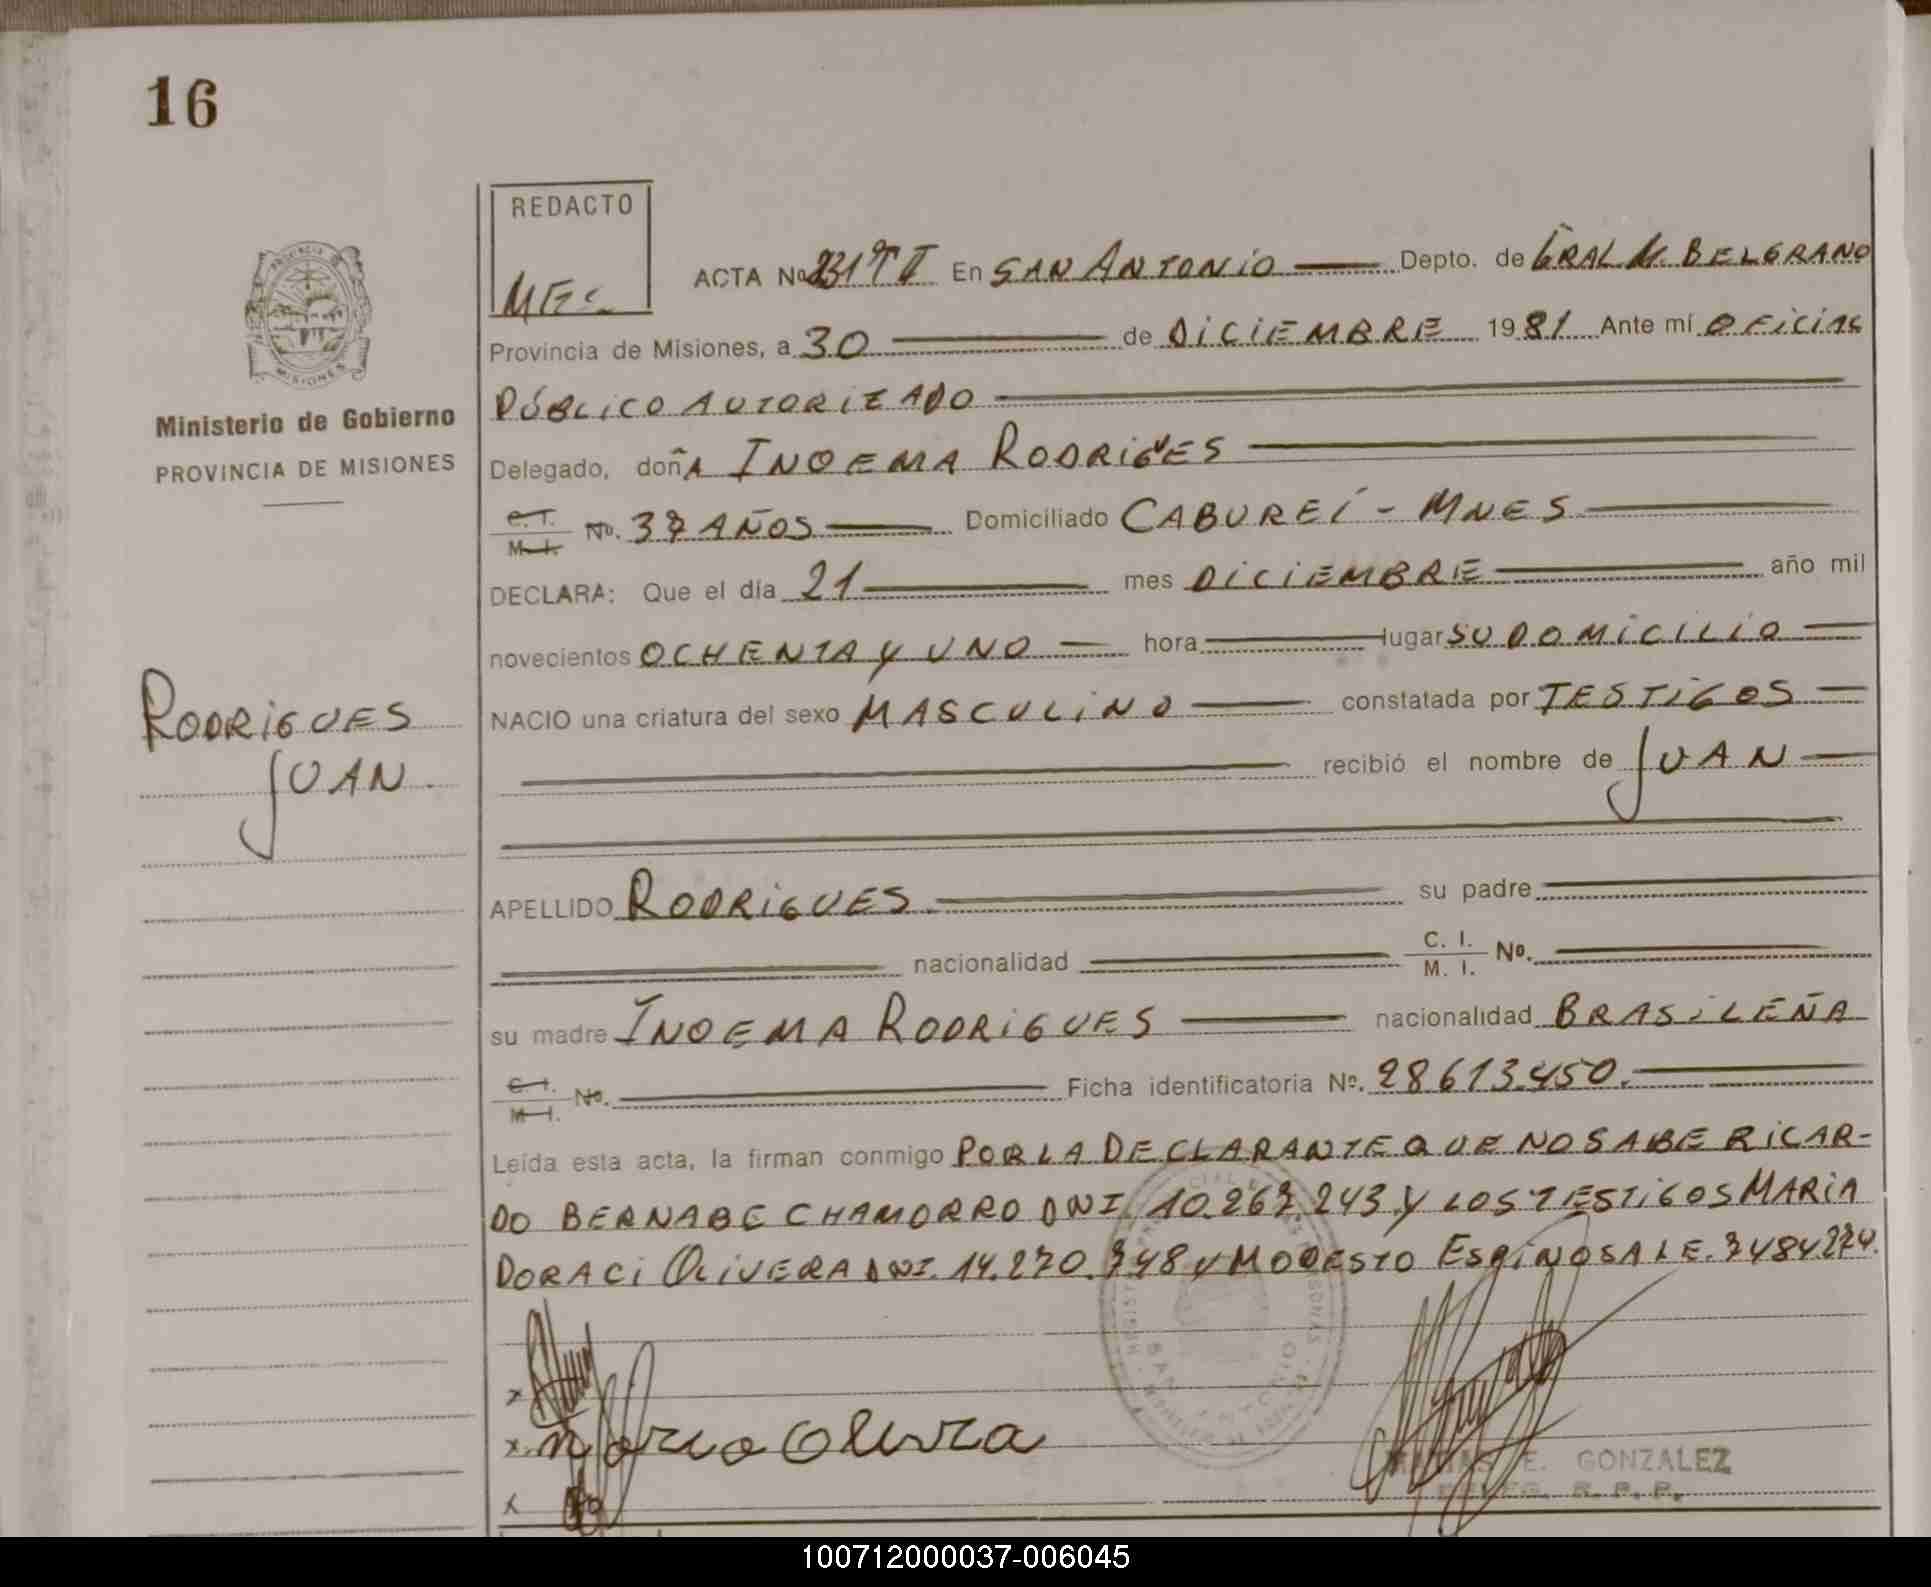 16
REDACTO
MEG
ACTA Nº 231 T I En SAN ANTONIO Depto. de GRAL M. BELGRANO
Provincia de Misiones, a 30 de DICIEMBRE 1981 Ante mí OFICIAL
PÚBLICO AUTORIZADO
Ministerio de Gobierno
PROVINCIA DE MISIONES
Delegado, doñA INOEMA RODRIGUES
C. I. M. I. No. 37 AÑOS Domiciliado CABUREÍ - MNES
DECLARA: Que el día 21 mes DICIEMBRE año mil
novecientos OCHENTA Y UNO hora lugar SU DOMICILIO
RODRIGUES
JUAN
NACIO una criatura del sexo MASCULINO constatada por TESTIGOS
recibió el nombre de JUAN
APELLIDO RODRIGUES su padre
nacionalidad C. I. M. I. Nº.
su madre INOEMA RODRIGUES nacionalidad BRASILEÑA
C. I. M. I. No. Ficha identificatoria Nº. 28613.450.
Leída esta acta, la firman conmigo POR LA DECLARANTE QUE NO SABE RICAR-
DO BERNABE CHAMORRO DNI. 10.267.243 Y LOS TESTIGOS MARIA
DORACI OLIVERA DNI. 14.270.748 Y MODESTO ESPINOSA L E. 7484274.
SAN ANTONIO
x
x Maria Olivera
x
MATIAS E. GONZALEZ
DELEG. R. P. P.
100712000037-006045